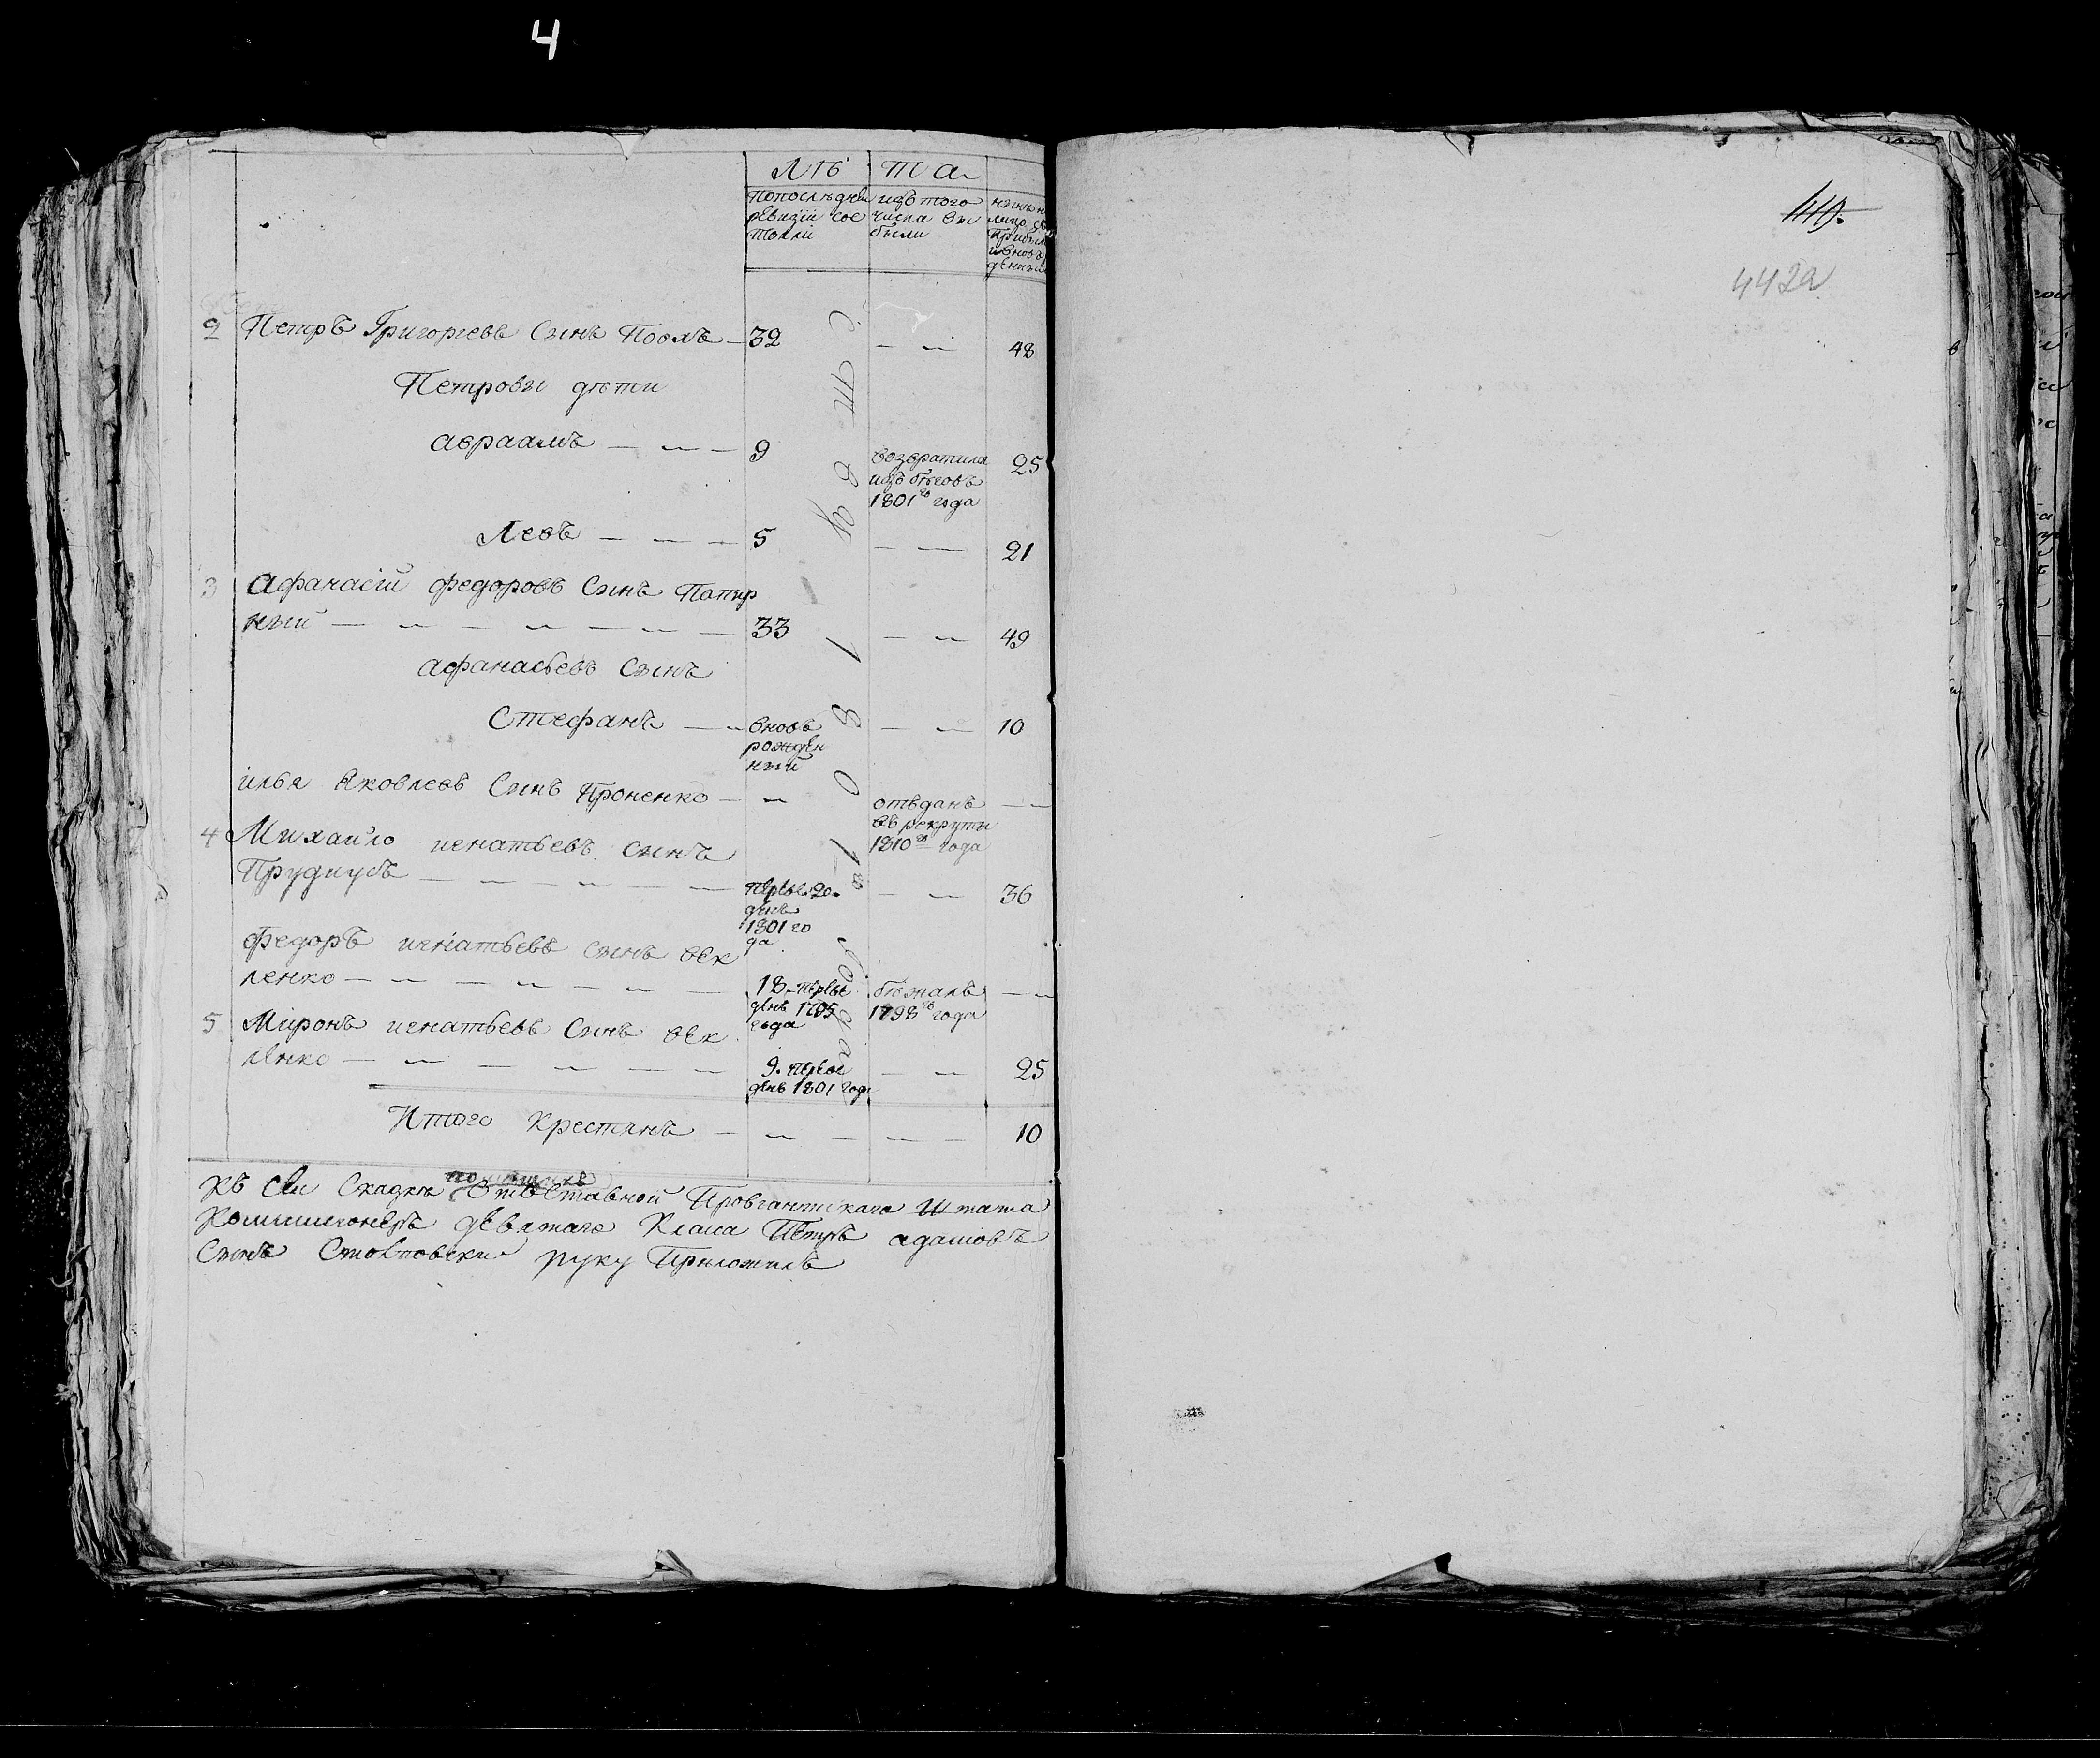 4
ЛѢ та
По послѣдней ревизіи состояли
изъ того числа выбыли
449.
442а
2 Петръ Григорьевъ Сынъ 32 — 48
Петровы дѣти
авраамъ — 9 возвратился изъ бѣговъ 1801го года 25
Левъ — — — 5 — — 21
3 Афанасій федоровъ Сынъ
ный — — — 33 — — 49
афанасьевъ Сынъ
Стефанъ — вновь рожденный — — 10
илья Яковлевъ Сынъ Проненко — — отъданъ въ рекруты 1810го года — —
4 Михайло игнатьевъ сынъ
— — — 20. 1801 года — — 36
федоръ игнатьевъ сынъ век
ленко — — — 18. день 1795 года бѣжалъ 1798го года — —
5 Миронъ игнатьевъ Сынъ век
ленко — — — 9. день 1801 года — — 25
Итого Крестянъ — — — 10
1801го года
Къ сеи Скаскѣ отъставной Провіантскаго Штата
девятаго Класа Петръ адамовъ
Сынъ руку Приложилъ